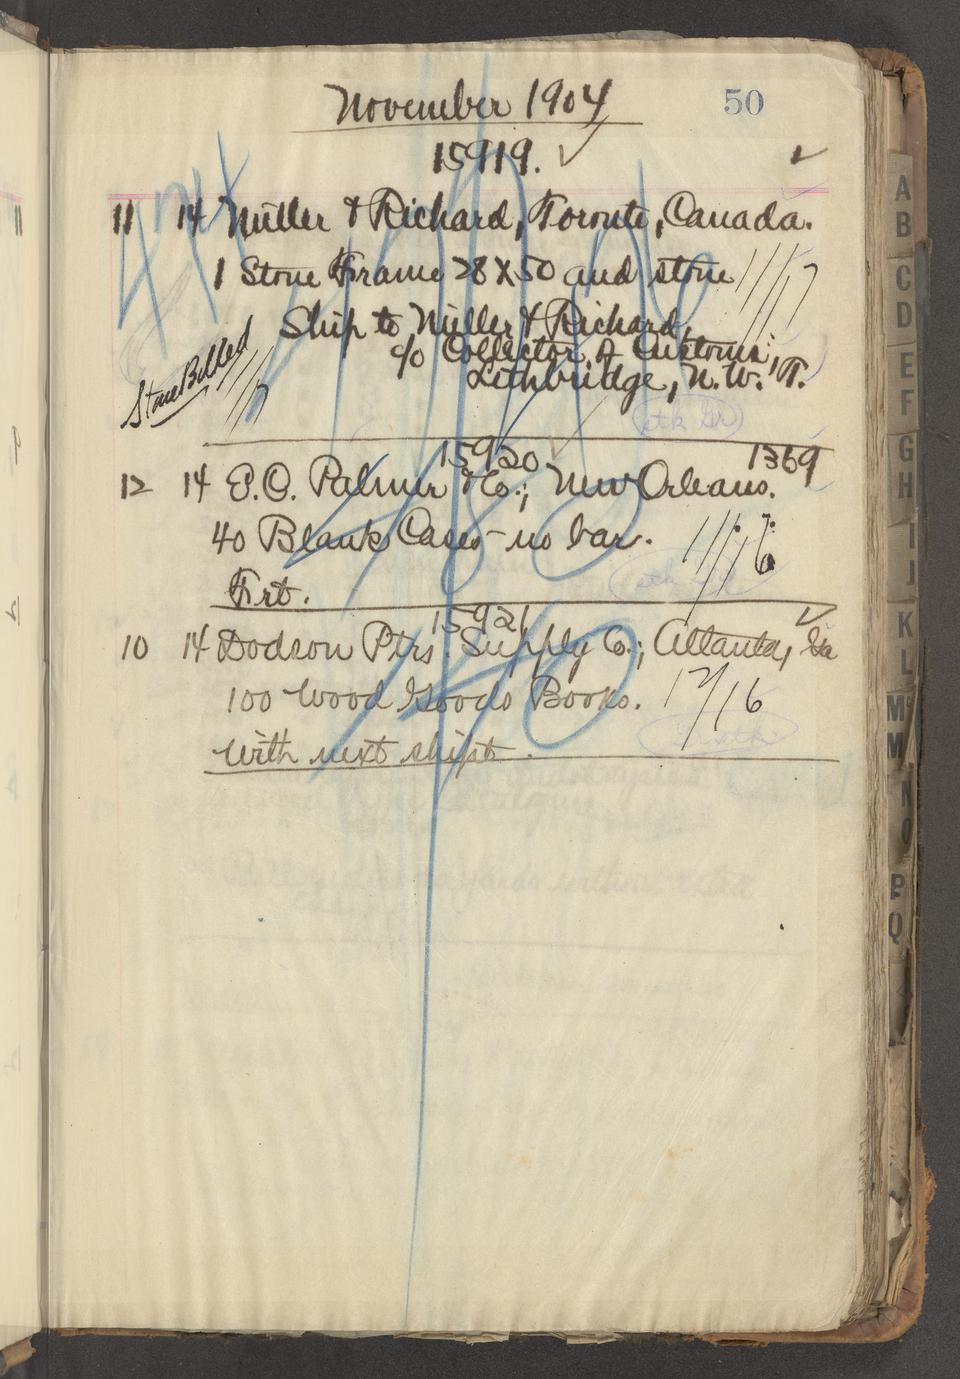 November 1904 50
15919.
11 14 Miller & Richard, Toronto, Canada.
1 Stone Frame 28 X 50 and stone 11/17
Ship to Miller & Richard,
c/o Collector of Customs,
Lethbridge, N.W.T.
Stone Billed 11/17
15920 1369
12 14 E.O. Palmer & Co., New Orleans.
40 Blank Cases - no bar. 11/16
Frt.
15921
10 14 Dodson Ptrs. Supply Co., Atlanta, Ga
100 Wood Goods Books. 12/16
With next shipt.
A
B
C
D
E
F
G
H
I
J
K
L
M
M
N
O
P
Q